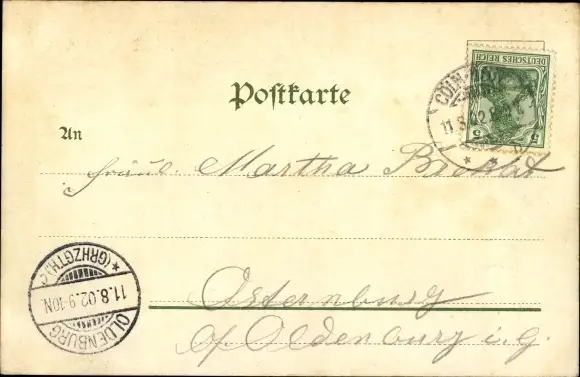 Postkarte
DEUTSCHES REICH
5 5
CÖLN
11.8.02
An
Fräul. Martha
Osternburg
OLDENBURG
*(GRHZGTH.)
11.8.02.9-10N.
b/ Oldenburg i. G.